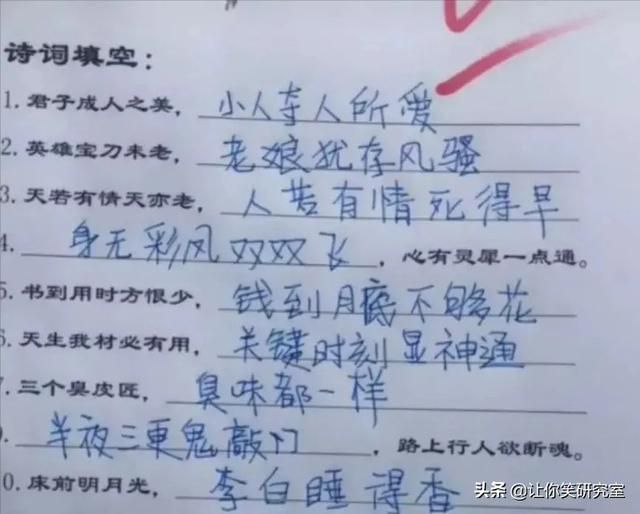 诗词填空：
1. 君子成人之美，小人夺人所爱
2. 英雄宝刀未老，老娘犹存风骚
3. 天若有情天亦老，人若有情死得早
4. 身无彩风双双飞，心有灵犀一点通。
5. 书到用时方恨少，钱到月底不够花
6. 天生我材必有用，关键时刻显神通
7. 三个臭皮匠，臭味都一样
9. 半夜三更鬼敲门，路上行人欲断魂。
0. 床前明月光，李白睡得香
头条 @让你笑研究室